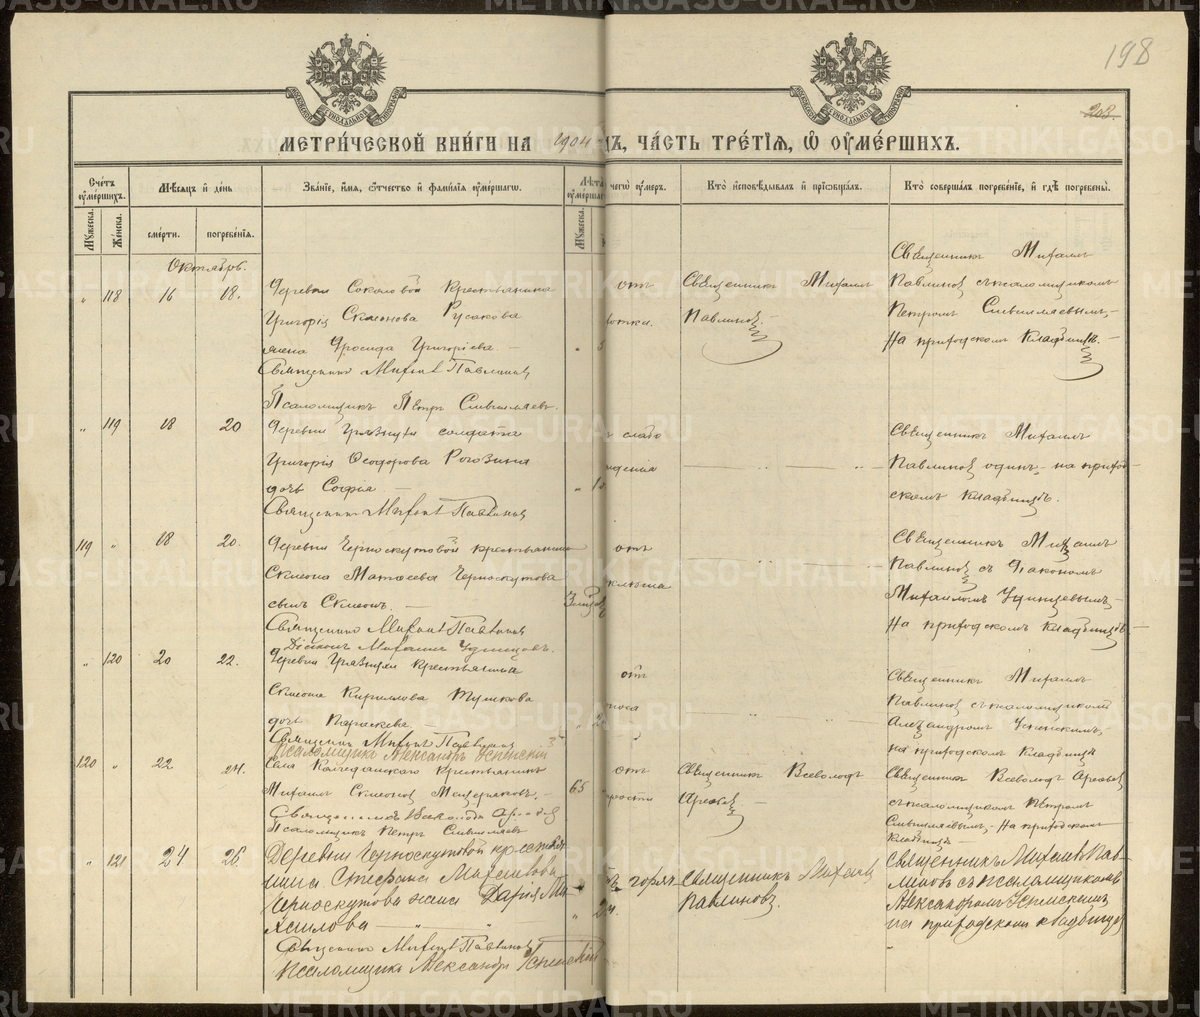 198
203
МЕТРИ́ЧЕСКОЙ КНИ́ГИ НА 1904 ДЪ, ЧА́СТЬ ТРЕ́ТЇѦ, Ѡ҆ ОУ҆МЕ́РШИХЪ.
Сче́тъ оу҆ме́ршихъ.
Мꙋ́жеска.
Же́нска.
Мѣ́сѧцъ и҆ де́нь
сме́рти.
погребе́нїѧ.
Зва́нїе, и҆́мѧ, ѻ҆́тчество и҆ фами́лїѧ оу҆ме́ршагѡ.
Лѣ́та оу҆ме́ршагѡ
Мꙋ́жеска.
чегѡ̀ оу҆́меръ.
Кто̀ и҆сповѣ́дывалъ и҆ прїѡбща́лъ.
Кто̀ соверша́лъ погребе́нїе, и҆ гдѣ̀ погребены̀.
Октябрь.
„ 118 16 18.
Деревни Соколовой крестьянина
Григорія Симеонова Русакова
жена Фросида Григоріева. —
Священникъ Михаилъ Павлиновъ
Псаломщикъ Петръ
отъ
Священникъ Михаилъ
Павлиновъ
Священникъ Михаилъ
Павлиновъ съ псаломщикомъ
Петромъ
На приходскомъ кладбищѣ. —
„ 119 18 20
Деревни Грязнухи солдата
Григорія Ѳеодорова Рогозина
дочь Софія —
Священникъ Михаилъ Павлиновъ
слабо
Священникъ Михаилъ
Павлиновъ одинъ, на приход-
скомъ кладбищѣ.
119 „ 18 20.
Деревни Черноскутовой крестьянина
Симеона Матѳеева Черноскутова
сынъ Симеонъ. —
Священникъ Михаилъ Павлиновъ
Діаконъ Михаилъ Удинцовъ.
отъ
Священникъ Михаилъ
Павлиновъ съ Діакономъ
Михаиломъ Удинцевымъ,
На приходскомъ кладбищѣ —
„ 120 20 22.
Деревни Грязнухи крестьянина
Симеона Кириллова
дочь Параскева. —
Священникъ Михаилъ Павлиновъ
Псаломщикъ Александръ Успенскій
отъ
носа
Священникъ Михаилъ
Павлиновъ съ псаломщикомъ
Александромъ Успенскимъ,
на приходскомъ кладбищѣ
120 „ 22 24.
Села Колчеданскаго крестьянинъ
Михаилъ Симеоновъ Мещеряковъ. —
65
Священникъ Всеволодъ
Псаломщикъ Петръ
отъ
Священникъ Всеволодъ
Священникъ Всеволодъ
съ псаломщикомъ Петромъ
На приходскомъ
кладбищѣ
„ 121 24 26
Деревни Черноскутовой крестья-
нина Стефана Михаилова
Черноскутова жена Дарія Ми-
хаилова — „ — „
Священникъ Михаилъ Павлиновъ
Псаломщикъ Александръ Успенскій
горяч
24.
Священникъ Михаилъ
Павлиновъ.
Священникъ Михаилъ Пав-
линовъ съ псаломщикомъ
Александромъ Успенскимъ
на приходскомъ кладбищѣ
METRIKI.GASO-URAL.RU